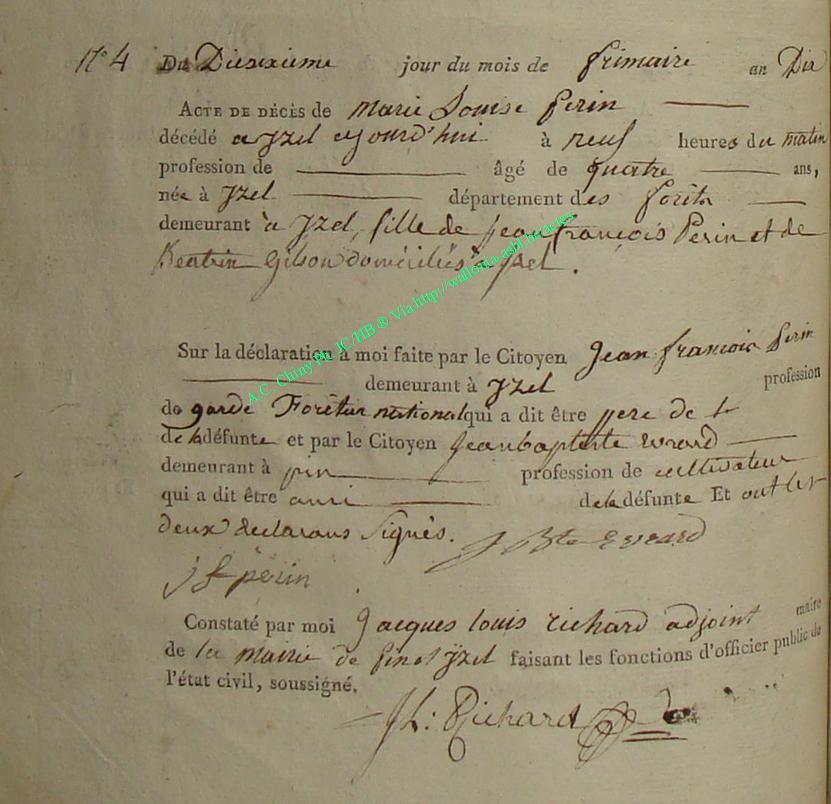 N° 4 Du Dixieme jour du mois de frimaire an Dix
ACTE DE DÉCÈS de Marie Louise Perin
décédé a yzel aujourd'hui à neuf heures du matin
profession de âgé de quatre ans,
née à yzel département des forêts
demeurant à yzel, fille de jean françois Perin et de
Gilson domiciliés a yzel.
A.C. Chiny Ph. JC/HB ® Via http://wallonia-asbl.be
Sur la déclaration à moi faite par le Citoyen jean françois Perin
demeurant à yzel profession
de garde Forêtier national qui a dit être pere de
de la défunte et par le Citoyen jean baptiste evrard
demeurant à pin profession de cultivateur
qui a dit être ami de la défunte Et ont les
deux declarans signés. J Bte Evrard
j f perin
Constaté par moi Jacques louis richard adjoint maire
de la mairie de pin et yzel faisant les fonctions d'officier public de
l'état civil, soussigné.
JL: Richard